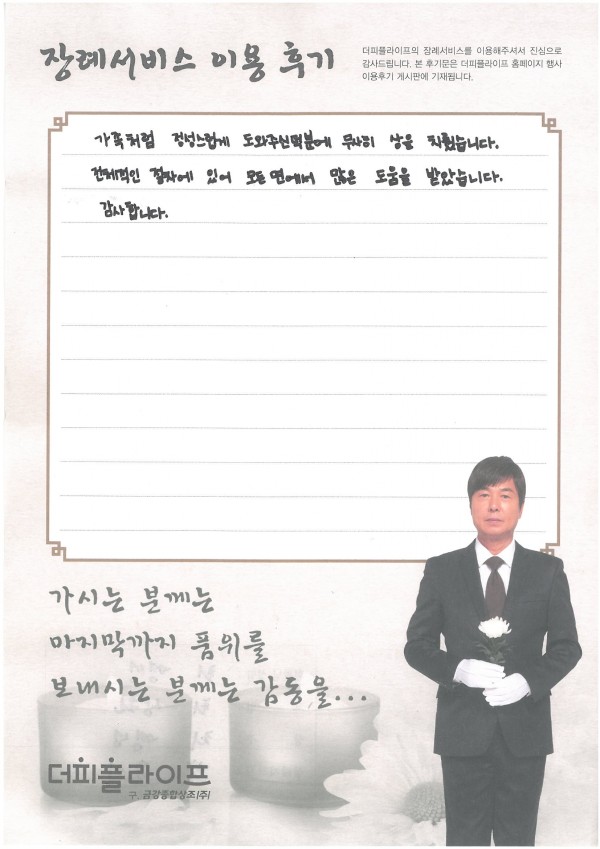 장례서비스 이용 후기
더피플라이프의 장례서비스를 이용해주셔서 진심으로
감사드립니다. 본 후기문은 더피플라이프 홈페이지 행사
이용후기 게시판에 기재됩니다.
가족처럼 정성스럽게 도와주신덕분에 무사히 상을 치뤘습니다.
전체적인 절차에 있어 모든면에서 많은 도움을 받았습니다.
감사합니다.
가시는 분께는
마지막까지 품위를
보내시는 분께는 감동을...
더피플라이프
구. 금강종합상조(주)